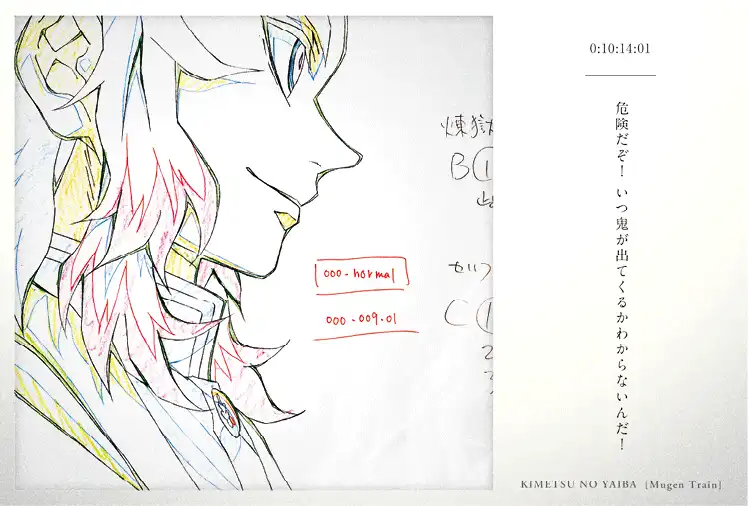 0:10:14:01
危険だぞ！いつ鬼が出てくるかわからないんだ！
煉獄
B①
000-normal
000-009-01
セリフ
C
2
KIMETSU NO YAIBA [Mugen Train]